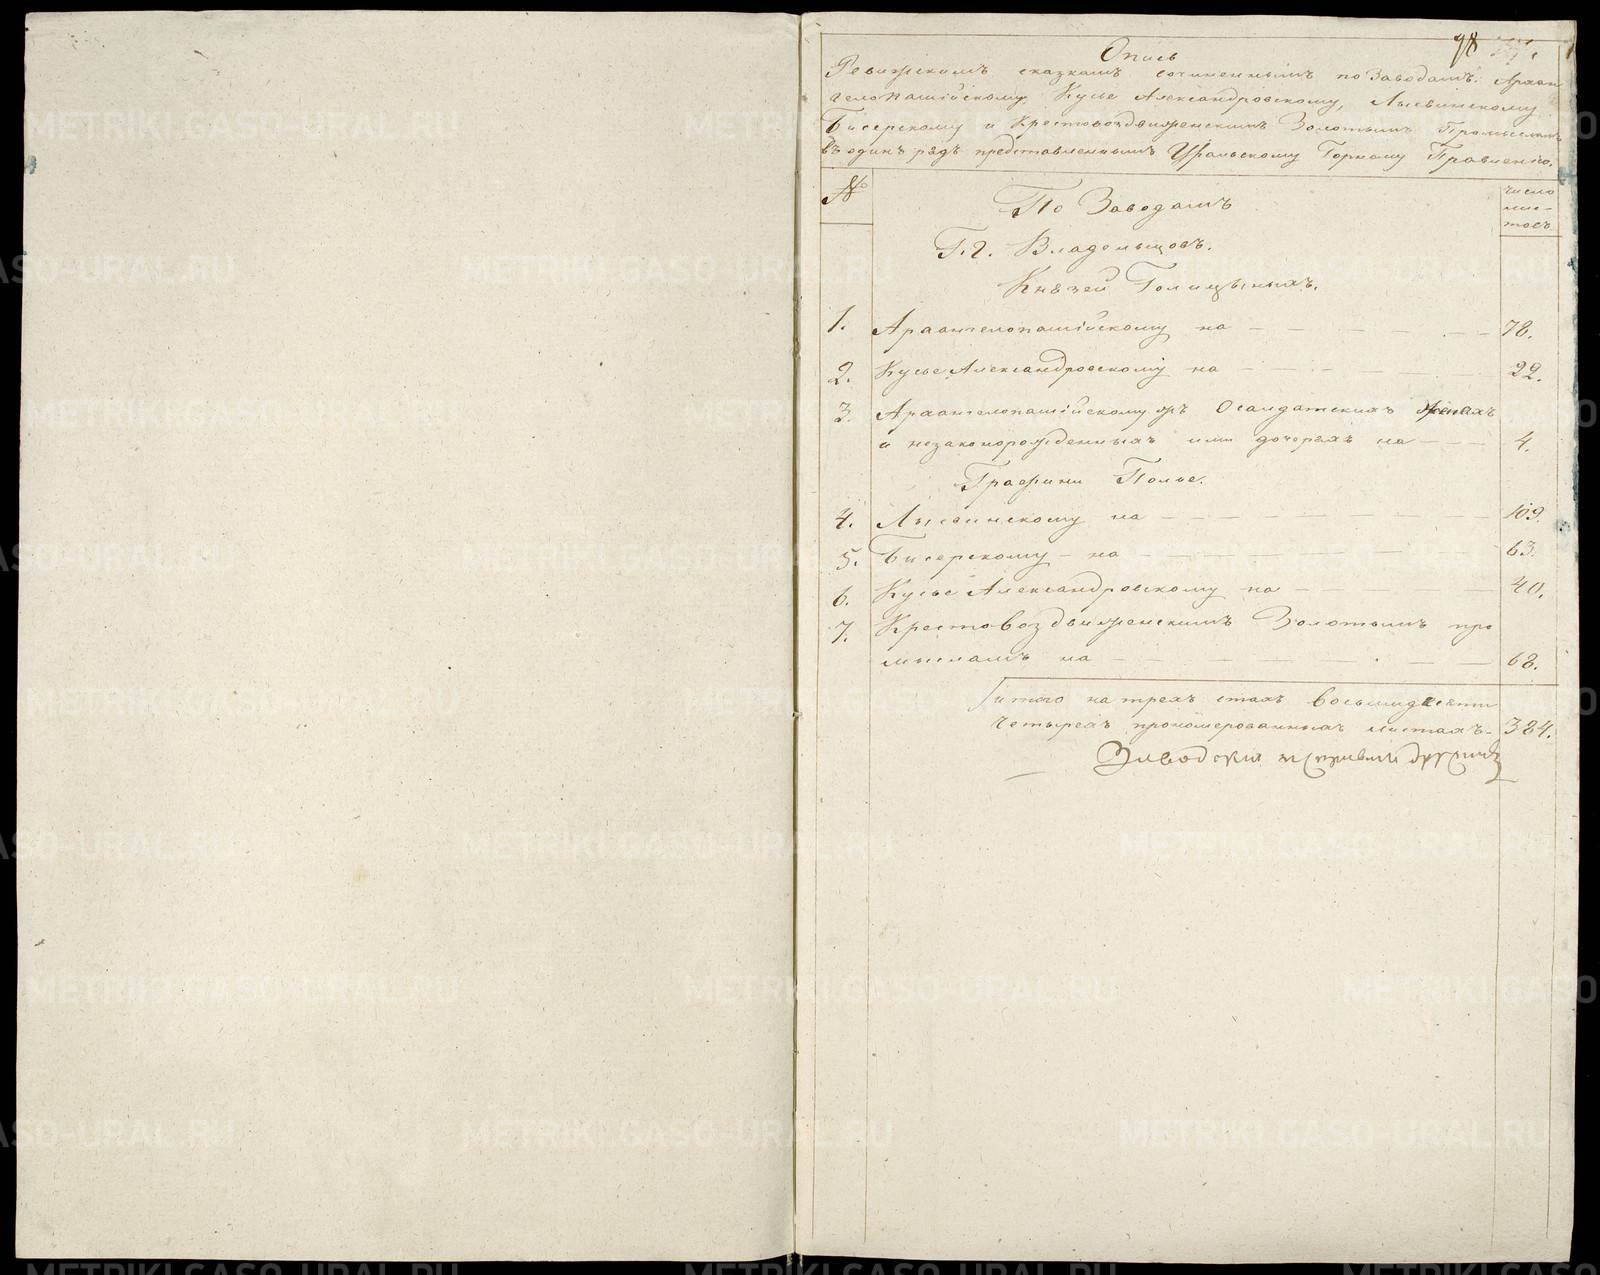 98
Опись
Ревижскимъ сказкамъ сочиненнымъ по Заводамъ: Архан
гелопашійскому, Кусье Александровскому, Лысвинскому
Бисерскому и Крестовоздвиженскимъ Золотымъ Промысламъ
въ одинъ рядъ представленнымъ Уральскому Горному Правленію.
№
По Заводамъ
число
лис-
товъ
Г.г. Владельцовъ.
Князей Голицыныхъ.
1. Архангелопашійскому на — 78.
2. Кусье Александровскому на — 22.
3. Архангелопашійскому жъ О салдатскихъ женахъ
и незаконорожденныхъ ими дочеряхъ на — 4.
Графини Полье.
4. Лысвинскому на — 109.
5. Бисерскому — на — 63.
6. Кусье Александровскому на — 40.
7. Крестовоздвиженскимъ Золотымъ про
мысламъ на — 68.
итого на трехъ стахъ восьмидесяти
четырехъ прономерованныхъ листахъ. 384.
METRIKI.GASO-URAL.RU